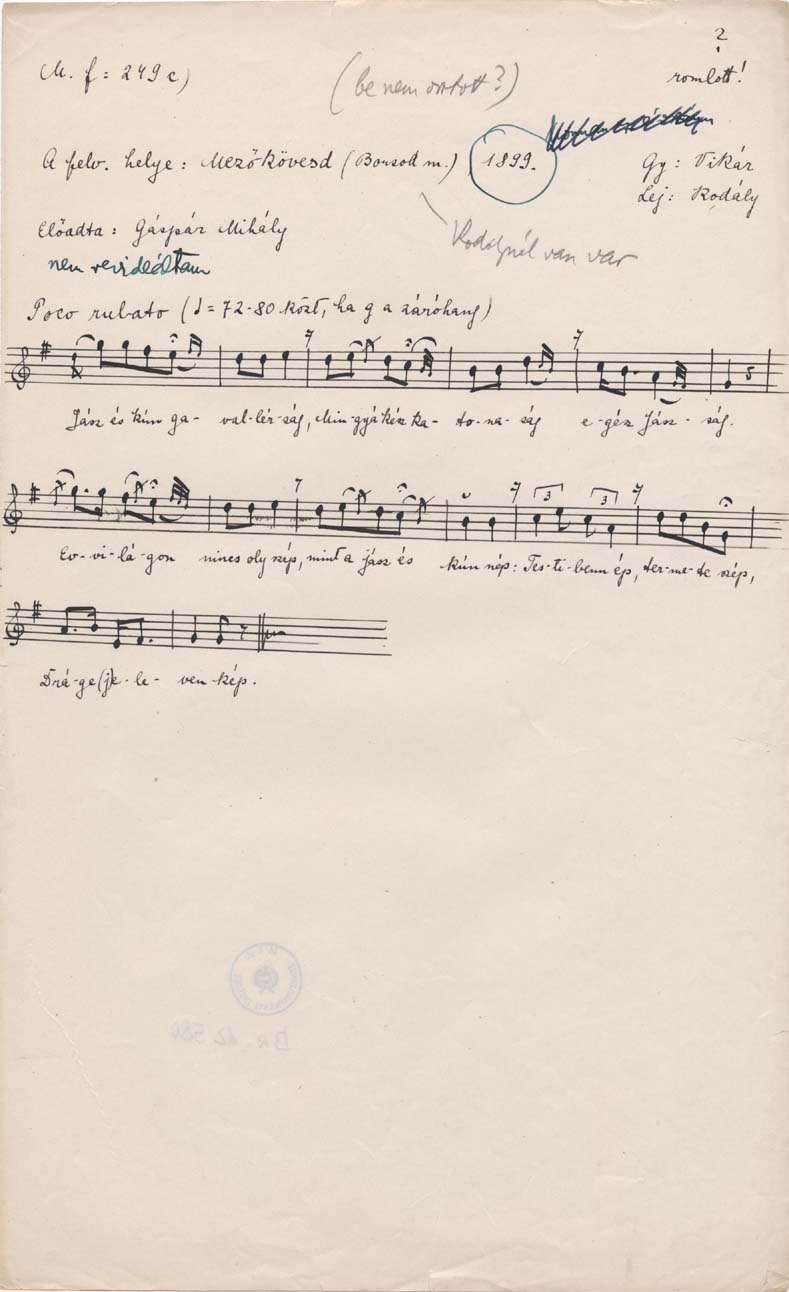 2
M. f: 249 c)
(be nem osztott?)
romlott!
A felv. helye: Mezőkövesd (Borsod m.) 1899.
Gy: Vikár
Lej: Kodály
Előadta: Gáspár Mihály
Kodálynál van var
nem revideáltam
Poco rubato (♩=72-80 közt, ha g a záróhang)
7 7
Jász és kún ga- val-lér-ság, Min-gyá kész ka- to-na- ság e-gész Jász- ság.
7 7 3 3 7
Ev-vi-lá-gon nincs oly szép, mint a jász és kún nép: Tes-ti-benn ép, ter-me-te szép,
Drá-ge(j)e-le- ven kép.